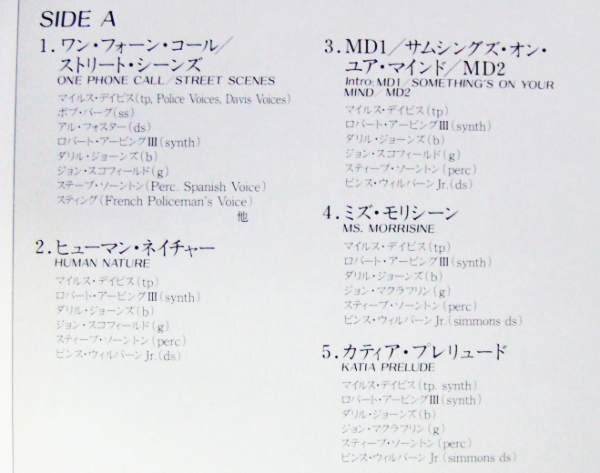 SIDE A
1.ワン・フォーン・コール/
ストリート・シーンズ
ONE PHONE CALL/STREET SCENES
マイルス・デイビス(tp, Police Voices, Davis Voices)
ボブ・バーグ(ss)
アル・フォスター(ds)
ロバート・アービングⅢ(synth)
ダリル・ジョーンズ(b)
ジョン・スコフィールド(g)
スティーブ・ソーントン(Perc. Spanish Voice)
スティング(French Policeman's Voice)
他
2.ヒューマン・ネイチャー
HUMAN NATURE
マイルス・デイビス(tp)
ロバート・アービングⅢ(synth)
ダリル・ジョーンズ(b)
ジョン・スコフィールド(g)
スティーブ・ソーントン(perc)
ビンス・ウィルバーンJr.(ds)
3.MD1/サムシングズ・オン・
ユア・マインド/MD2
Intro: MD1/SOMETHING'S ON YOUR
MIND/MD2
マイルス・デイビス(tp)
ロバート・アービングⅢ(synth)
ダリル・ジョーンズ(b)
ジョン・スコフィールド(g)
スティーブ・ソーントン(perc)
ビンス・ウィルバーンJr.(ds)
4.ミズ・モリシーン
MS. MORRISINE
マイルス・デイビス(tp)
ロバート・アービングⅢ(synth)
ダリル・ジョーンズ(b)
ジョン・マクラフリン(g)
スティーブ・ソーントン(perc)
ビンス・ウィルバーンJr.(simmons ds)
5.カティア・プレリュード
KATIA PRELUDE
マイルス・デイビス(tp. synth)
ロバート・アービングⅢ(synth)
ダリル・ジョーンズ(b)
ジョン・マクラフリン(g)
スティーブ・ソーントン(perc)
ビンス・ウィルバーンJr.(simmons ds)